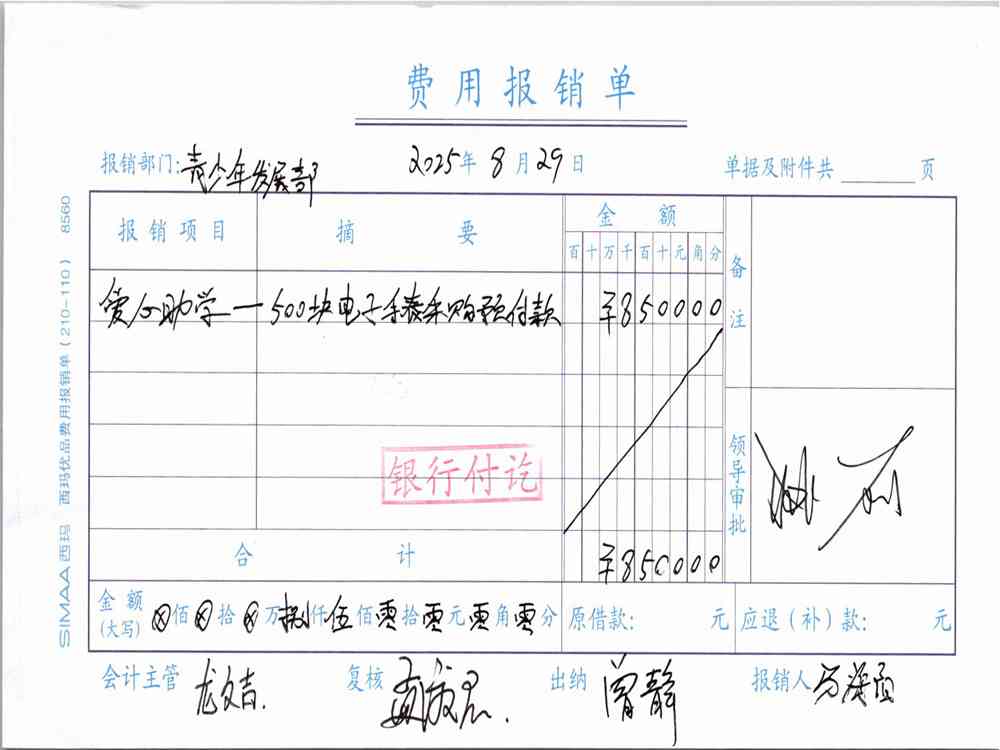 费用报销单
报销部门:青少年发展部 2025年8月29日 单据及附件共 页
报销项目 摘要 金额 备注
百十万千百十元角分
爱心助学—500块电子手表采购预付款 ¥850000
银行付讫
领导审批
合计 ¥850000
金额(大写) ⊗佰⊗拾⊗万捌仟伍佰零拾零元零角零分 原借款: 元 应退(补)款: 元
会计主管 龙文吉. 复核 出纳 曾静 报销人
SIMAA西玛 西玛优品费用报销单(210-110) 8560